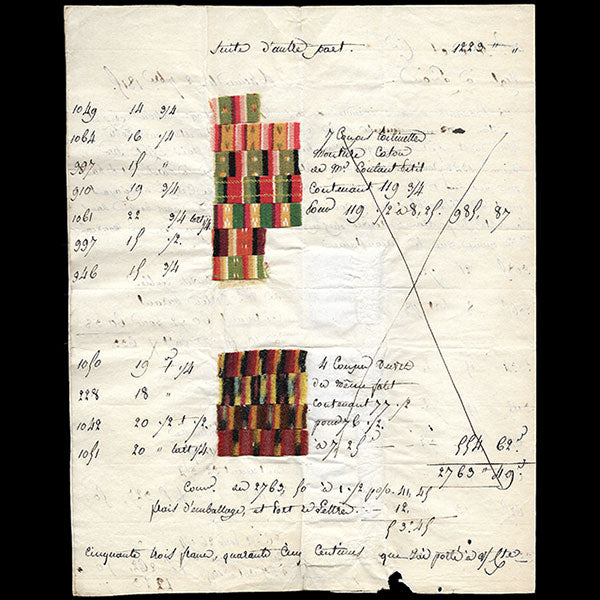 Suite d'autre part. 1223 " "
1049 14 3/4
1064 16 1/4
987 15 "
910 19 3/4
1061 22 3/4
997 15 1/2
946 15 3/4
7 Coupes toilinettes
monture Coton
de Mr Coulant Petit
contenant 119 3/4
pour 119 1/2 à 8,25. 985, 87
1050 19 1/4
228 18 "
1042 20 1/2
1051 20 "
4 Coupes
du même
contenant 77 1/2
pour 76 1/2
à 7,25 554 62
2763 " 49
Com. de 2763, 50 à 1 1/2 p% 41,45
frais d'emballage, et Port de Lettre. 12,
53.45
Cinquante trois francs, quarante Cinq Centimes que j'ai porté à